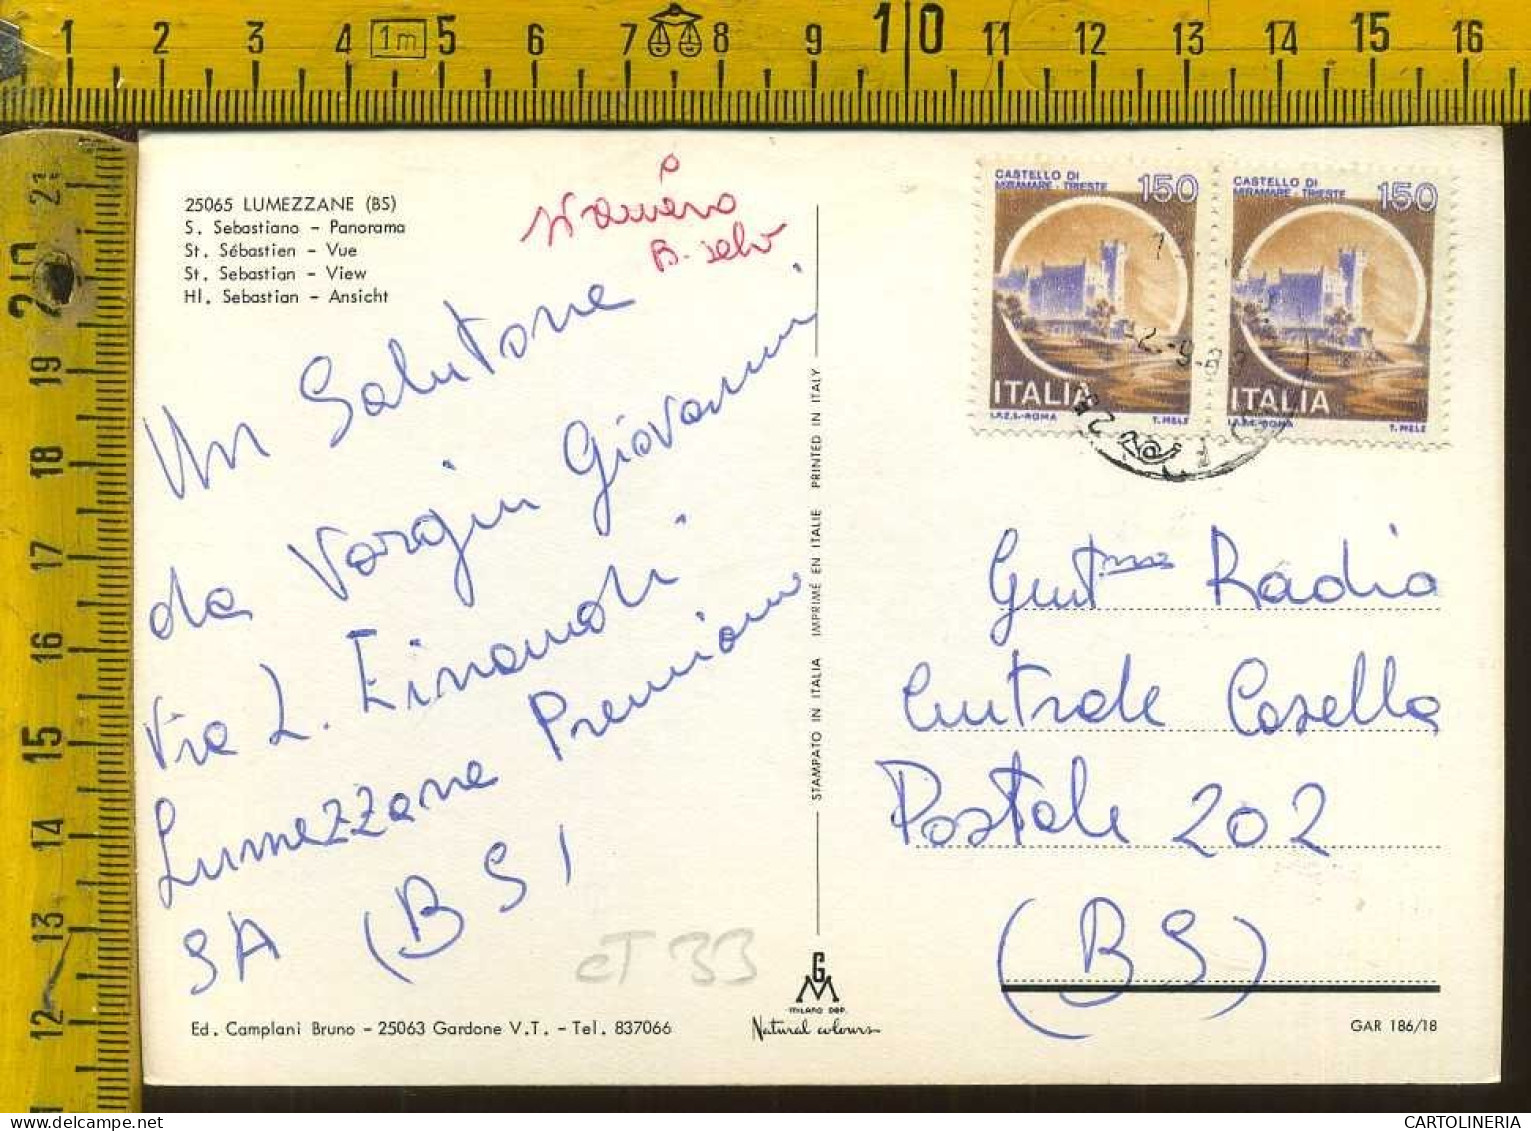 1 2 3 4 1m 5 6 7 8 9 10 11 12 13 14 15 16
21
20
19
18
17
16
15
14
13
12
25065 LUMEZZANE (BS)
S. Sebastiano - Panorama
St. Sébastien - Vue
St. Sebastian - View
Hl. Sebastian - Ansicht
B.
Un Salutone
da Vargiu Giovanni
Via L. Einaudi
Lumezzane Premiano
SA (BS)
CT 33
Ed. Camplani Bruno - 25063 Gardone V.T. - Tel. 837066
STAMPATO IN ITALIA IMPRIMÉ EN ITALIE PRINTED IN ITALY
GM
MILANO DEP.
Natural colours
CASTELLO DI
MIRAMARE - TRIESTE
150
ITALIA
I.P.Z.S.-ROMA T. MELE
CASTELLO DI
MIRAMARE - TRIESTE
150
ITALIA
I.P.Z.S.-ROMA T. MELE
Gent.ma Radio
Centrale Casella
Postale 202
(BS)
GAR 186/18
CARTOLINERIA